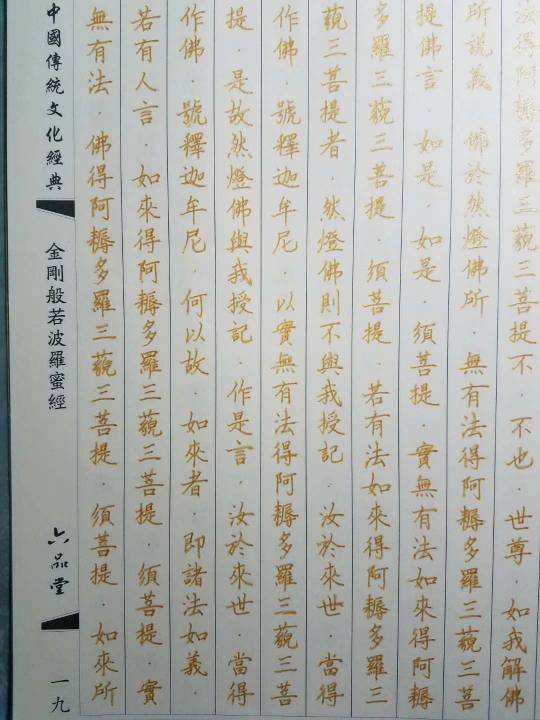 法得阿耨多羅三藐三菩提不．不也．世尊．如我解佛
所說義．佛於然燈佛所．無有法得阿耨多羅三藐三菩
提佛言．如是．如是．須菩提．實無有法如來得阿耨
多羅三藐三菩提．須菩提．若有法如來得阿耨多羅三
藐三菩提者．然燈佛則不與我授記．汝於來世．當得
作佛．號釋迦牟尼．以實無有法得阿耨多羅三藐三菩
提．是故然燈佛與我授記．作是言．汝於來世．當得
作佛．號釋迦牟尼．何以故．如來者．即諸法如義．
若有人言．如來得阿耨多羅三藐三菩提．須菩提．實
無有法．佛得阿耨多羅三藐三菩提．須菩提．如來所
中國傳統文化經典
金剛般若波羅蜜經
六品堂
一九